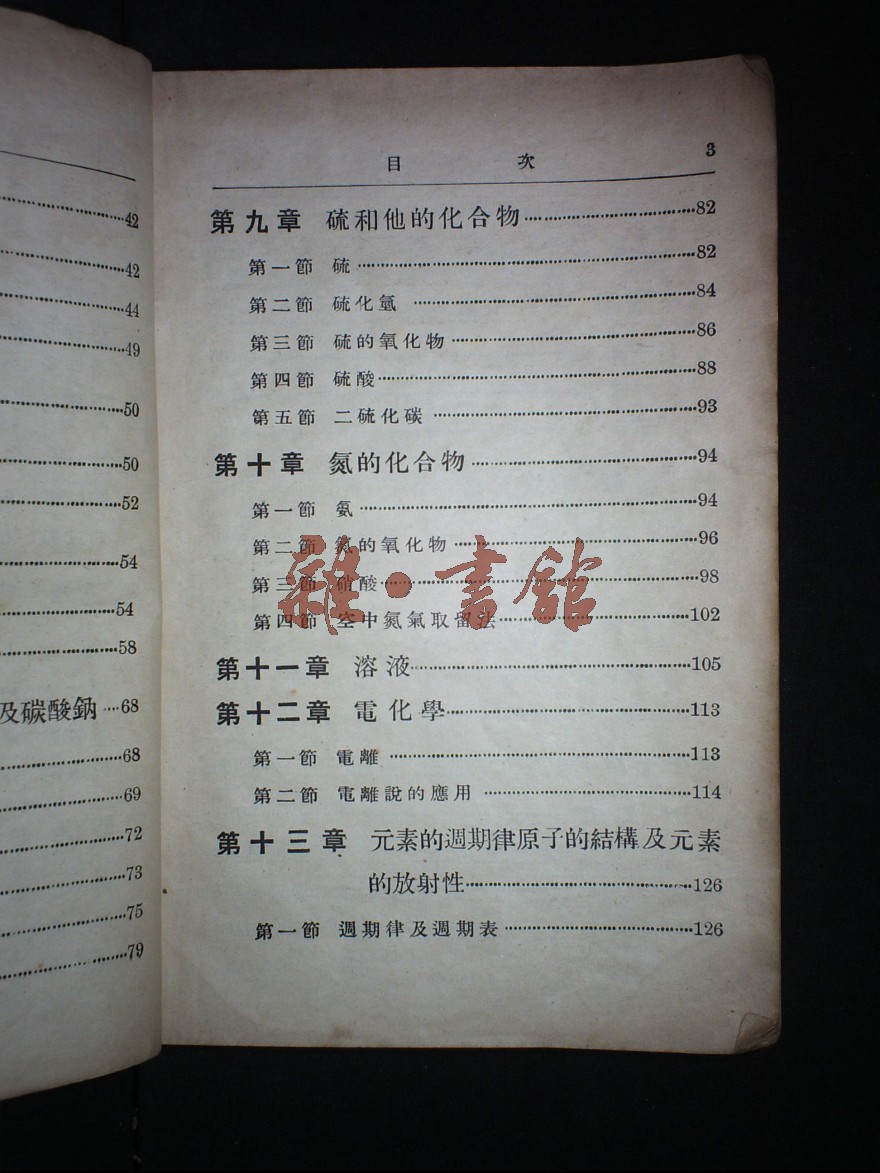 42
42
44
49
50
50
52
54
54
58
及碳酸鈉…68
68
69
72
73
75
79
目 次 3
第九章 硫和他的化合物…82
第一節 硫…82
第二節 硫化氫…84
第三節 硫的氧化物…86
第四節 硫酸…88
第五節 二硫化碳…93
第十章 氮的化合物…94
第一節 氨…94
第二節 氮的氧化物…96
第三節 硝酸…98
第四節 空中氮氣取留法…102
第十一章 溶液…105
第十二章 電化學…113
第一節 電離…113
第二節 電離說的應用…114
第十三章 元素的週期律原子的結構及元素
的放射性…126
第一節 週期律及週期表…126
雜·書館